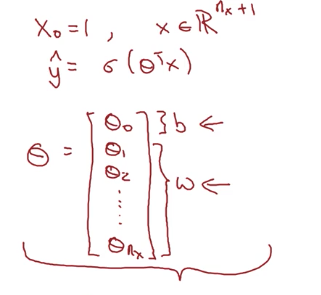 x₀=1 , x∈ℝⁿˣ⁺¹
ŷ = σ(θᵀx)
θ = [θ₀ } b ←
θ₁
θ₂
⋮
θₙₓ] } w ←